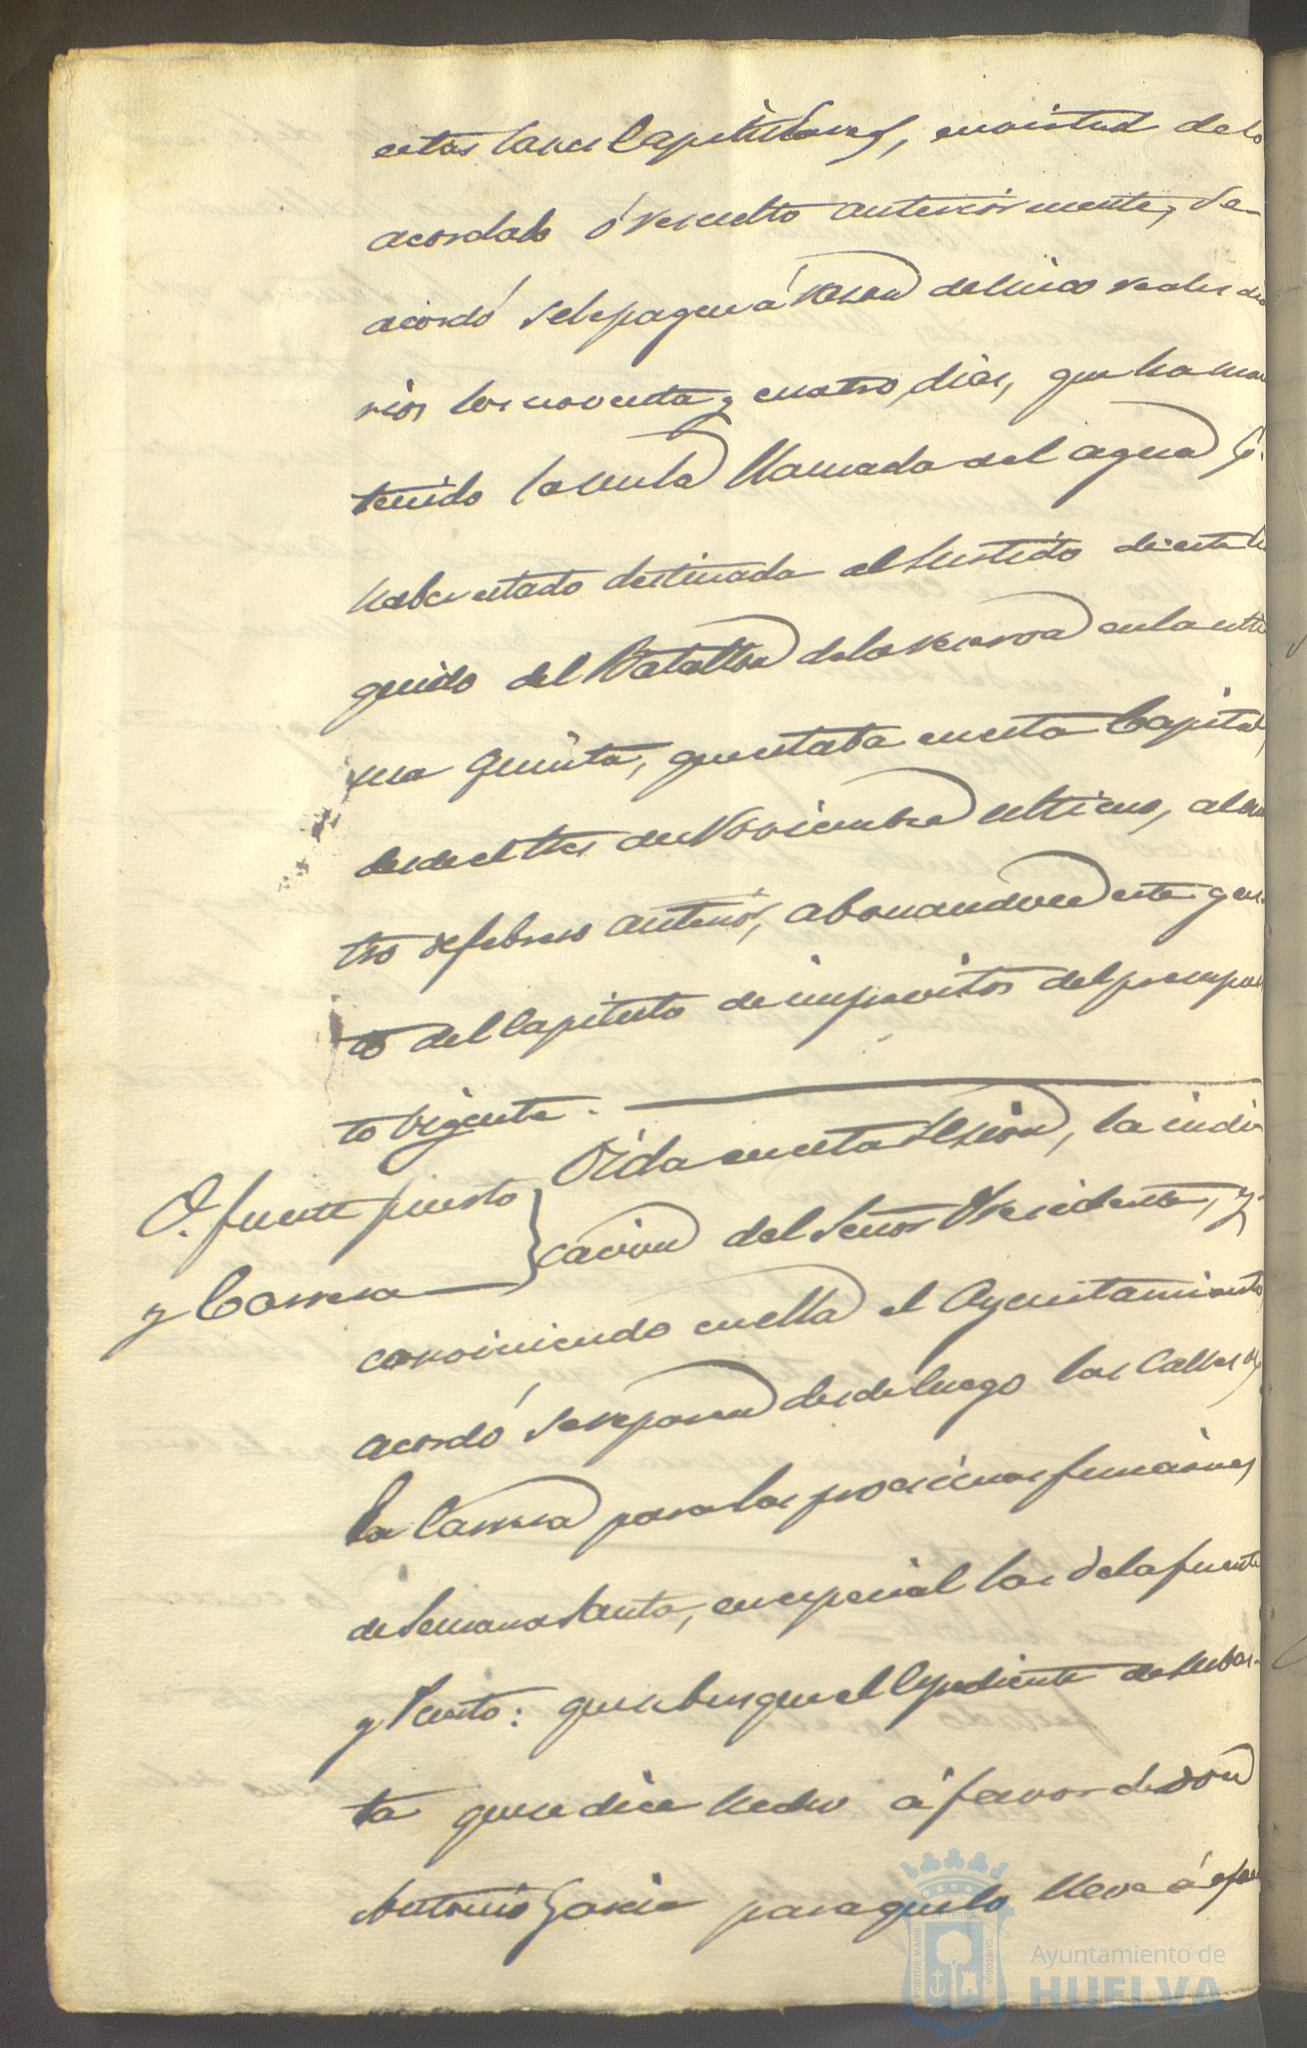 estas Casas Capitulares, en virtud de lo
acordado ó resuelto anteriormente, se
acordó se le pague á razon de cinco reales dia
rios los noventa y cuatro dias, que ha man
tenido la mula llamada del agua
haber estado destinada al surtido de esta
guido del Batallon de la reserva en la estin
ma quinta, que estaba en esta Capital,
desde el tres de Noviembre ultimo, al cua
tro de febrero anterior, abonandose este gas
to del Capitulo de imprevistos del presupues
to vigente.
O. fuente puerto
y Carrera
Oida en esta Sesion, la indi
cacion del Señor Presidente, y
conviniendo en ella el Ayuntamiento
acordó se reparen desde luego las Calles de
la Carrera para las procsimas funciones
de Semana Santa, en especial las de la fuente
y Puerto: que se busque el Expediente de subas-
ta que se dice hecho á favor de don
Antonio Garcia para que lo lleve á efec
Ayuntamiento de
HUELVA